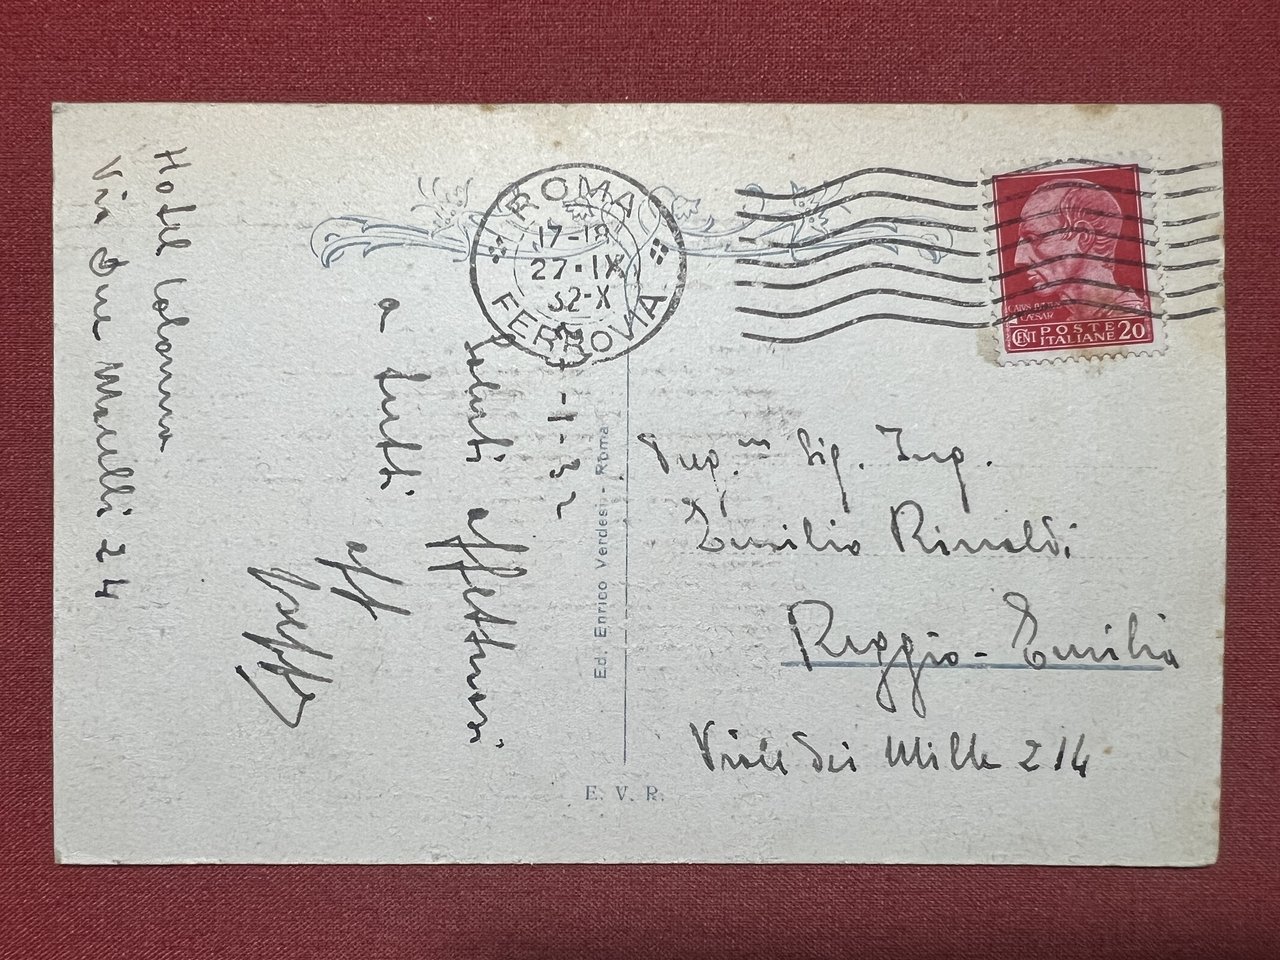 Hotel Colonna
Via Due Macelli 24
ROMA
17-18
27·IX
32-X
FERROVIA
CAIVS IVLIVS
CAESAR
CENT POSTE 20
ITALIANE
Saluti affettuosi
a tutti
aff
Ed. Enrico Verdesi - Roma
E. V. R.
Sig. Ing.
Emilio Rinaldi
Reggio-Emilia
Viale dei Mille 214